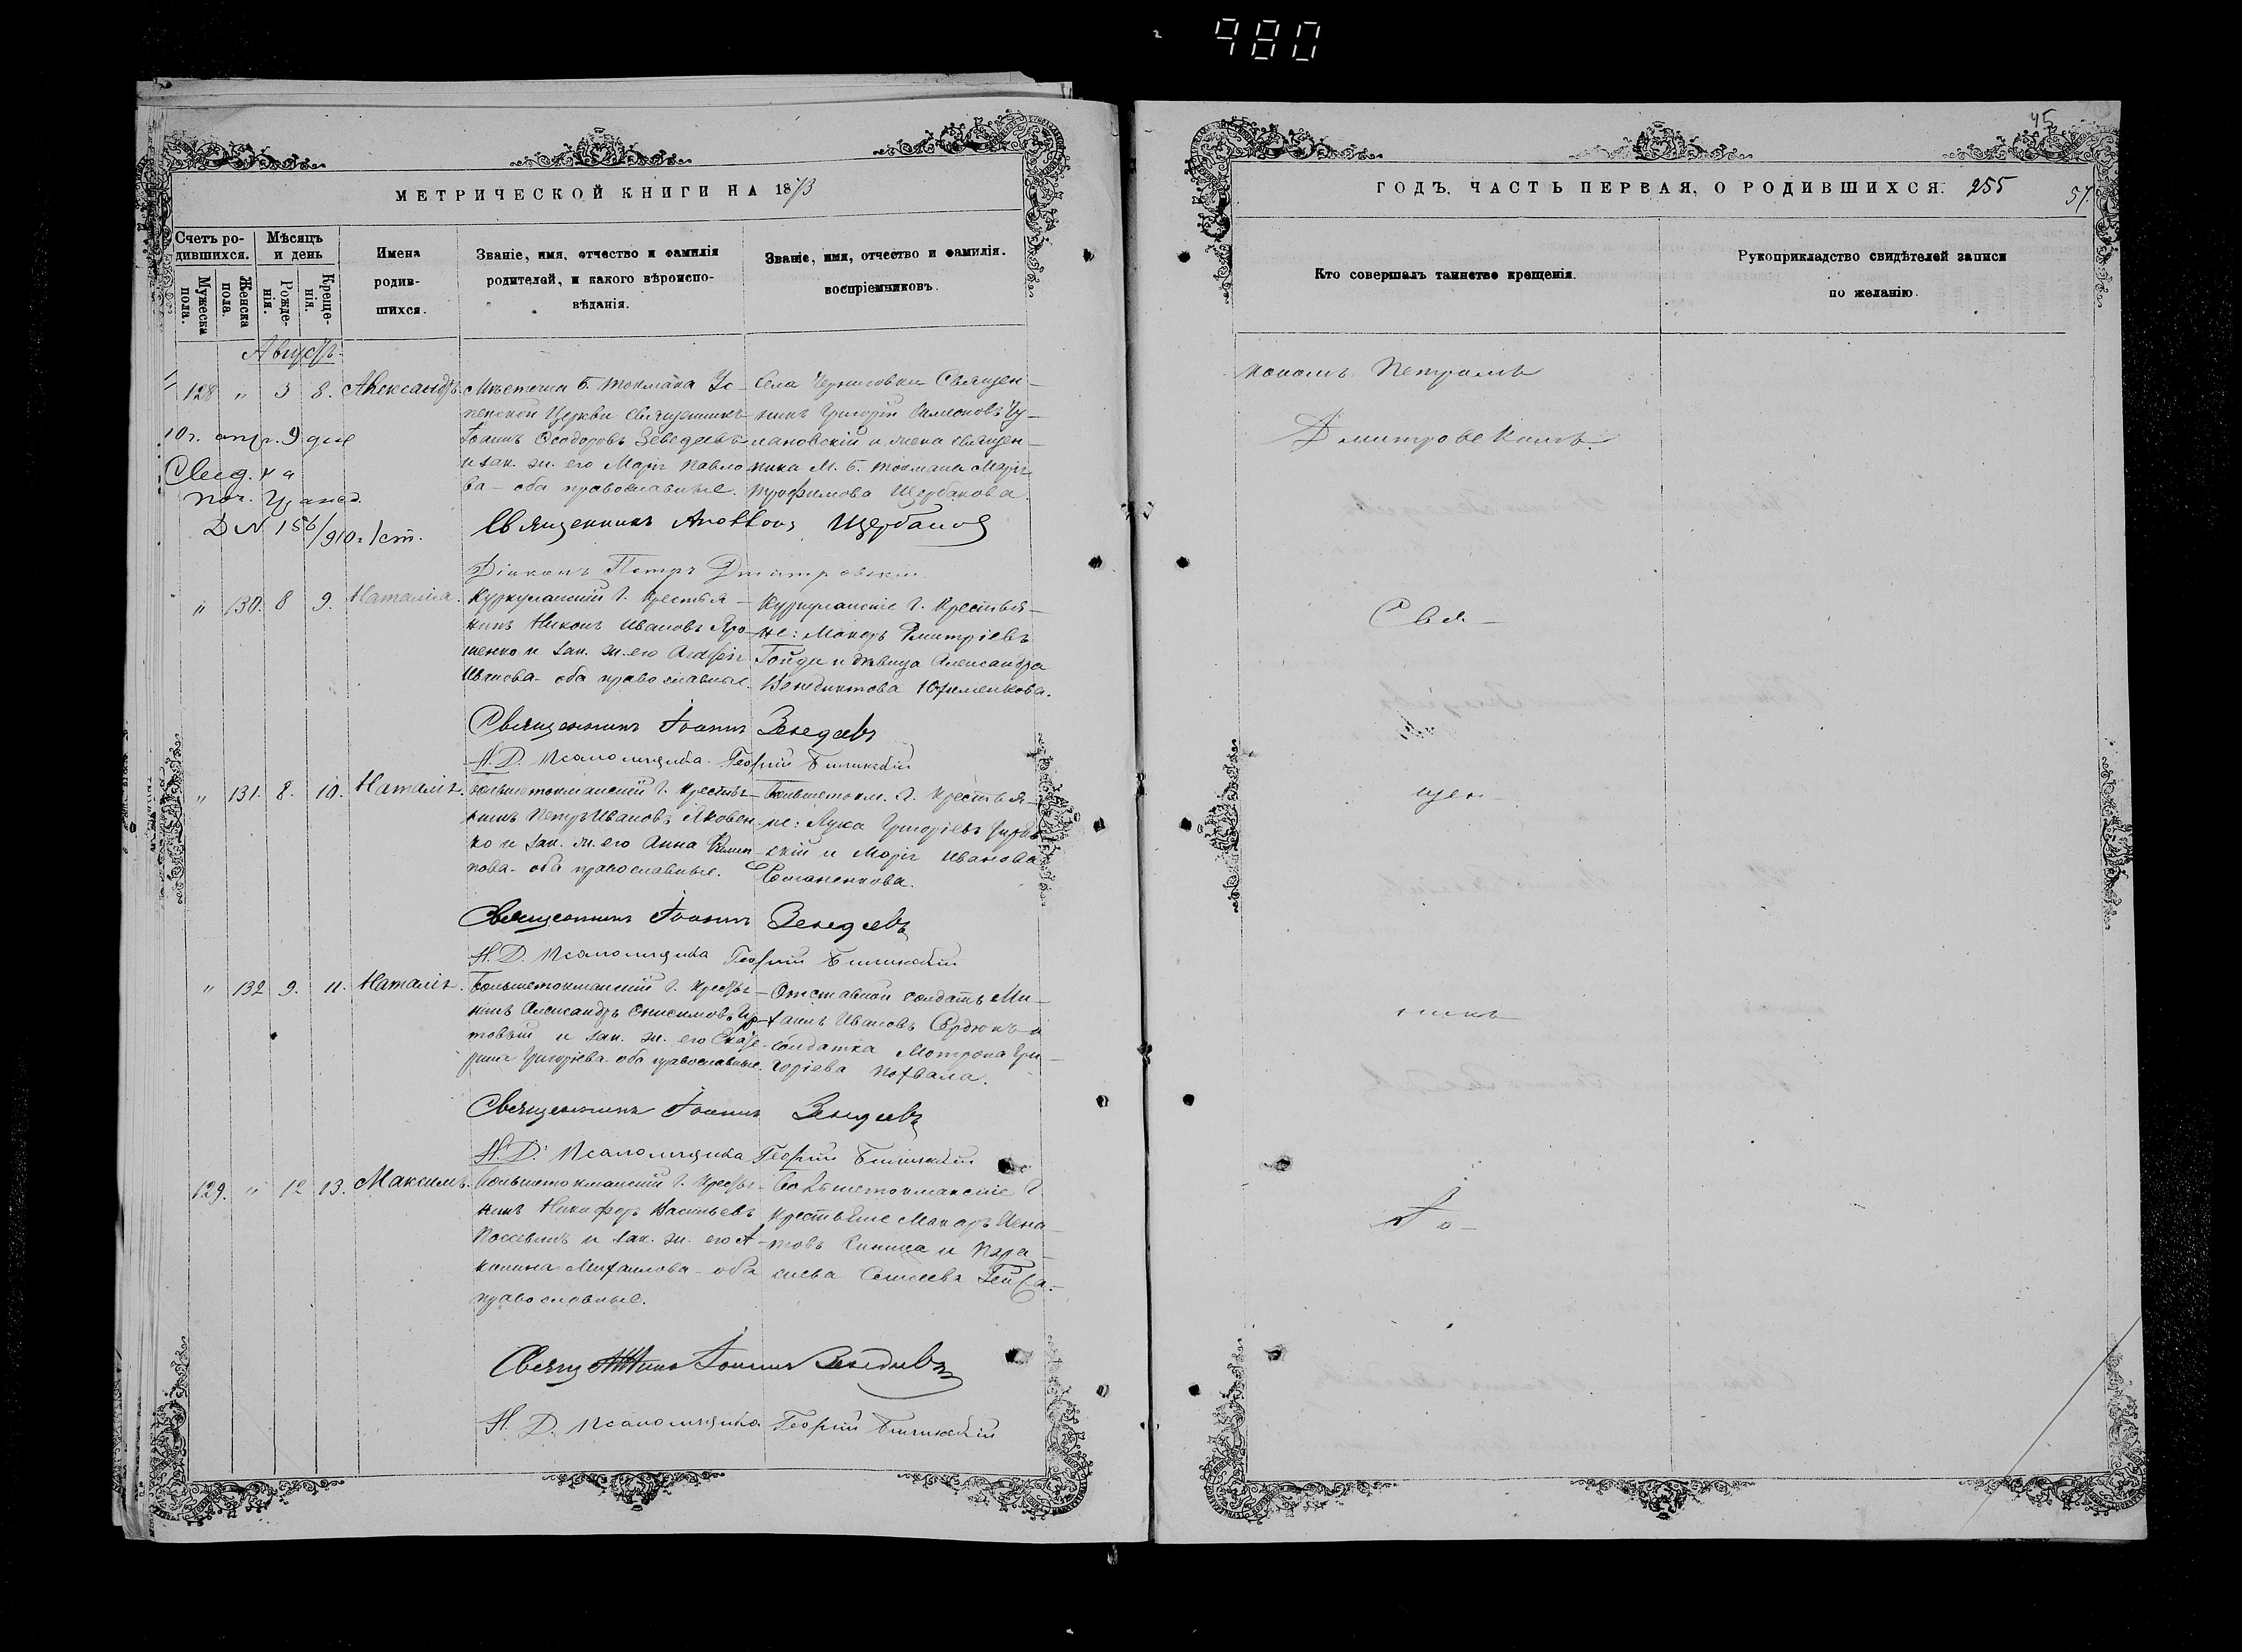 980
МЕТРИЧЕСКОЙ КНИГИ НА 1873
Счетъ ро-
дившихся.
Мужеска пола.
Женска пола.
Мѣсяцъ
и день
Рожде-
нія.
Креще-
нія.
Имена
родив-
шихся.
Званіе, имя, отчество и фамилія
родителей, и какого вѣроиспо-
вѣданія.
Званіе, имя, отчество и фамилія.
воспріемниковъ.
Августъ.
128 " 3 8. Александръ
Мѣстечка Б. Токмака Ус-
пенской Церкви Священникъ
Іоаннъ Ѳеодоровъ Зеведеевъ
и зак. ж. его Марія Павло-
ва - оба православные.
Села Черниговки Священ-
никъ Григорій Симеоновъ
и жена священ-
ника М. Б. Токмака Марія
Трофимова Щербакова.
10г. апр. 9 дня
Свид. на
поч. гражд.
D N 156/910г. 1 ст.
Священникъ Щербаковъ
Діаконъ Петръ Дмитровскій
" 130. 8 9. Наталія.
Куркулакскій г. крестья-
нинъ Никонъ Ивановъ Яро-
шенко и зак. ж. его Агафія
Иванова - оба православные.
Куркулакскіе г. крестья-
не: Макаръ Дмитріевъ
Гойда и дѣвица Александра
Венедиктова Юхименкова.
Священникъ Іоаннъ Зеведеевъ
И. Д. Псаломщика Георгій
" 131. 8. 10. Наталія.
Большетокмакскій г. крестья-
нинъ Петръ Ивановъ Яковен-
ко и зак. ж. его Анна
оба православные.
Большетокм. г. крестья-
не: Лука Григорьевъ
и Марія Иванова
Священникъ Іоаннъ Зеведеевъ
И. Д. Псаломщика Георгій
" 132 9. 11. Наталія.
Большетокмакскій г. крестья-
нинъ Александръ Онисимовъ
и зак. ж. его Екате-
рина Григорьева - оба православные.
Отставной солдатъ Ми-
хаилъ Ивановъ Сердюкъ и
солдатка Мотрона Гри-
горіева Похвала.
Священникъ Іоаннъ Зеведеевъ
И. Д. Псаломщика Георгій
129. " 12 13. Максимъ.
Большетокмакскій г. крестья-
нинъ Никифоръ Васильевъ
и зак. ж. его А-
килина Михаилова - оба
православные.
Большетокмакскіе г.
крестьяне Макаръ Игна-
товъ и Пара-
скева
Священникъ Іоаннъ Зеведеевъ
И. Д. Псаломщика Георгій
45
ГОДЪ. ЧАСТЬ ПЕРВАЯ, О РОДИВШИХСЯ: 255
57.
Кто совершалъ таинство крещенія.
Рукоприкладство свидѣтелей записи
по желанію.
кономъ Петромъ
Дмитровскимъ.
Свя-
щен-
никъ
Іо-